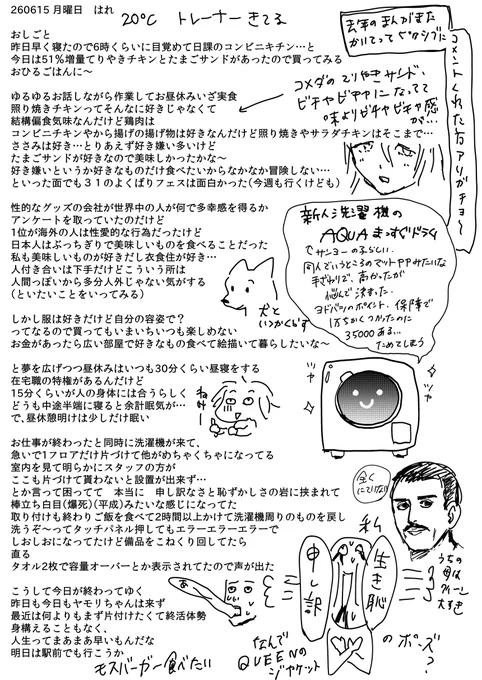 260615月曜日　はれ
20℃　トレーナーきてる
おしごと
昨日早く寝たので6時くらいに目覚めて日課のコンビニキチン…と
今日は51％増量てりやきチキンとたまごサンドがあったので買ってみる
おひるごはんに～
ゆるゆるお話しながら作業してお昼休みいざ実食
照り焼きチキンってそんなに好きじゃなくて
結構偏食気味なんだけど鶏肉は
コンビニチキンやから揚げの揚げ物は好きなんだけど照り焼きやサラダチキンはそこまで…
ささみは好き…とりあえず好き嫌い多いけど
たまごサンドが好きなので美味しかったかな～
好き嫌いというか好きなものだけ食べたいからなかなか冒険しない…
といった面でも３１のよくばりフェスは面白かった(今週も行くけども)
性的なグッズの会社が世界中の人が何で多幸感を得るか
アンケートを取っていたのだけど
1位が海外の人は性愛的な行為だったけど
日本人はぶっちぎりで美味しいものを食べることだった
私も美味しいものが好きだし衣食住が好き…
人付き合いは下手だけどこういう所は
人間っぽいから多分人外じゃない気がする
(といたいことをいってみる)
しかし服は好きだけど自分の容姿で？
ってなるので買ってもいまいちいつも楽しめない
お金があったら広い部屋で好きなもの食べて絵描いて暮らしたいな～
と夢を広げつつ昼休みはいつも30分くらい昼寝をする
在宅職の特権があるんだけど
15分くらいが人の身体には合うらしく
どうも中途半端に寝ると余計眠気が…
で、昼休憩明けは少しだけ眠い
お仕事が終わったと同時に洗濯機が来て、
急いで1フロアだけ片づけて他がめちゃくちゃになってる
室内を見て明らかにスタッフの方が
ここも片づけて貰わないと設置が出来ず…
とか言って困ってて　本当に　申し訳なさと恥ずかしさの岩に挟まれて
棒立ち白目(爆死)(平成)みたいな感じになってた
取り付けも終わりご飯を食べて2時間以上かけて洗濯機周りのものを戻し
洗うぞ～ってタッチパネル押してもエラーエラーエラーで
しおしおになってたけど備品をこねくり回してたら
直る
タオル2枚で容量オーバーとか表示されてたので声が出た
こうして今日が終わってゆく
昨日も今日もヤモリちゃんは来ず
最近は何よりもまず片付けたくて終活体勢
身構えることもなく、
人生ってまあまあ早いもんだな
明日は駅前でも行こうか
モスバーガー食べたい
去年のまんがまた
コメントくれた方アリガチョ～
コメダのてりやきサンド、
ビチャビチャになってて
味よりビチャビチャ感
が…
新入洗濯機の
AQUAまっすぐドラム
サンヨーの子らしい
同人でいうところのマットPPみたいな
手ざわりで、高かったが
悩んで決まった
ヨドバシのポイント、保障で
1万ちかくつかったのに
35000ある…
ためてしまう
ツヤ
ツヤ
犬と
いつかくらす
ねむー
全く
にていない
私
生き恥
申し訳
のポーズ？
なんで
QUEENの
ジャケット
うちの
母は
クイーン
大すき